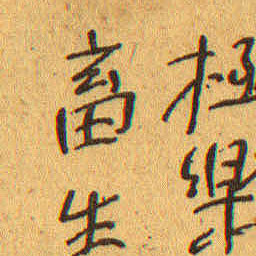 極樂
畜生